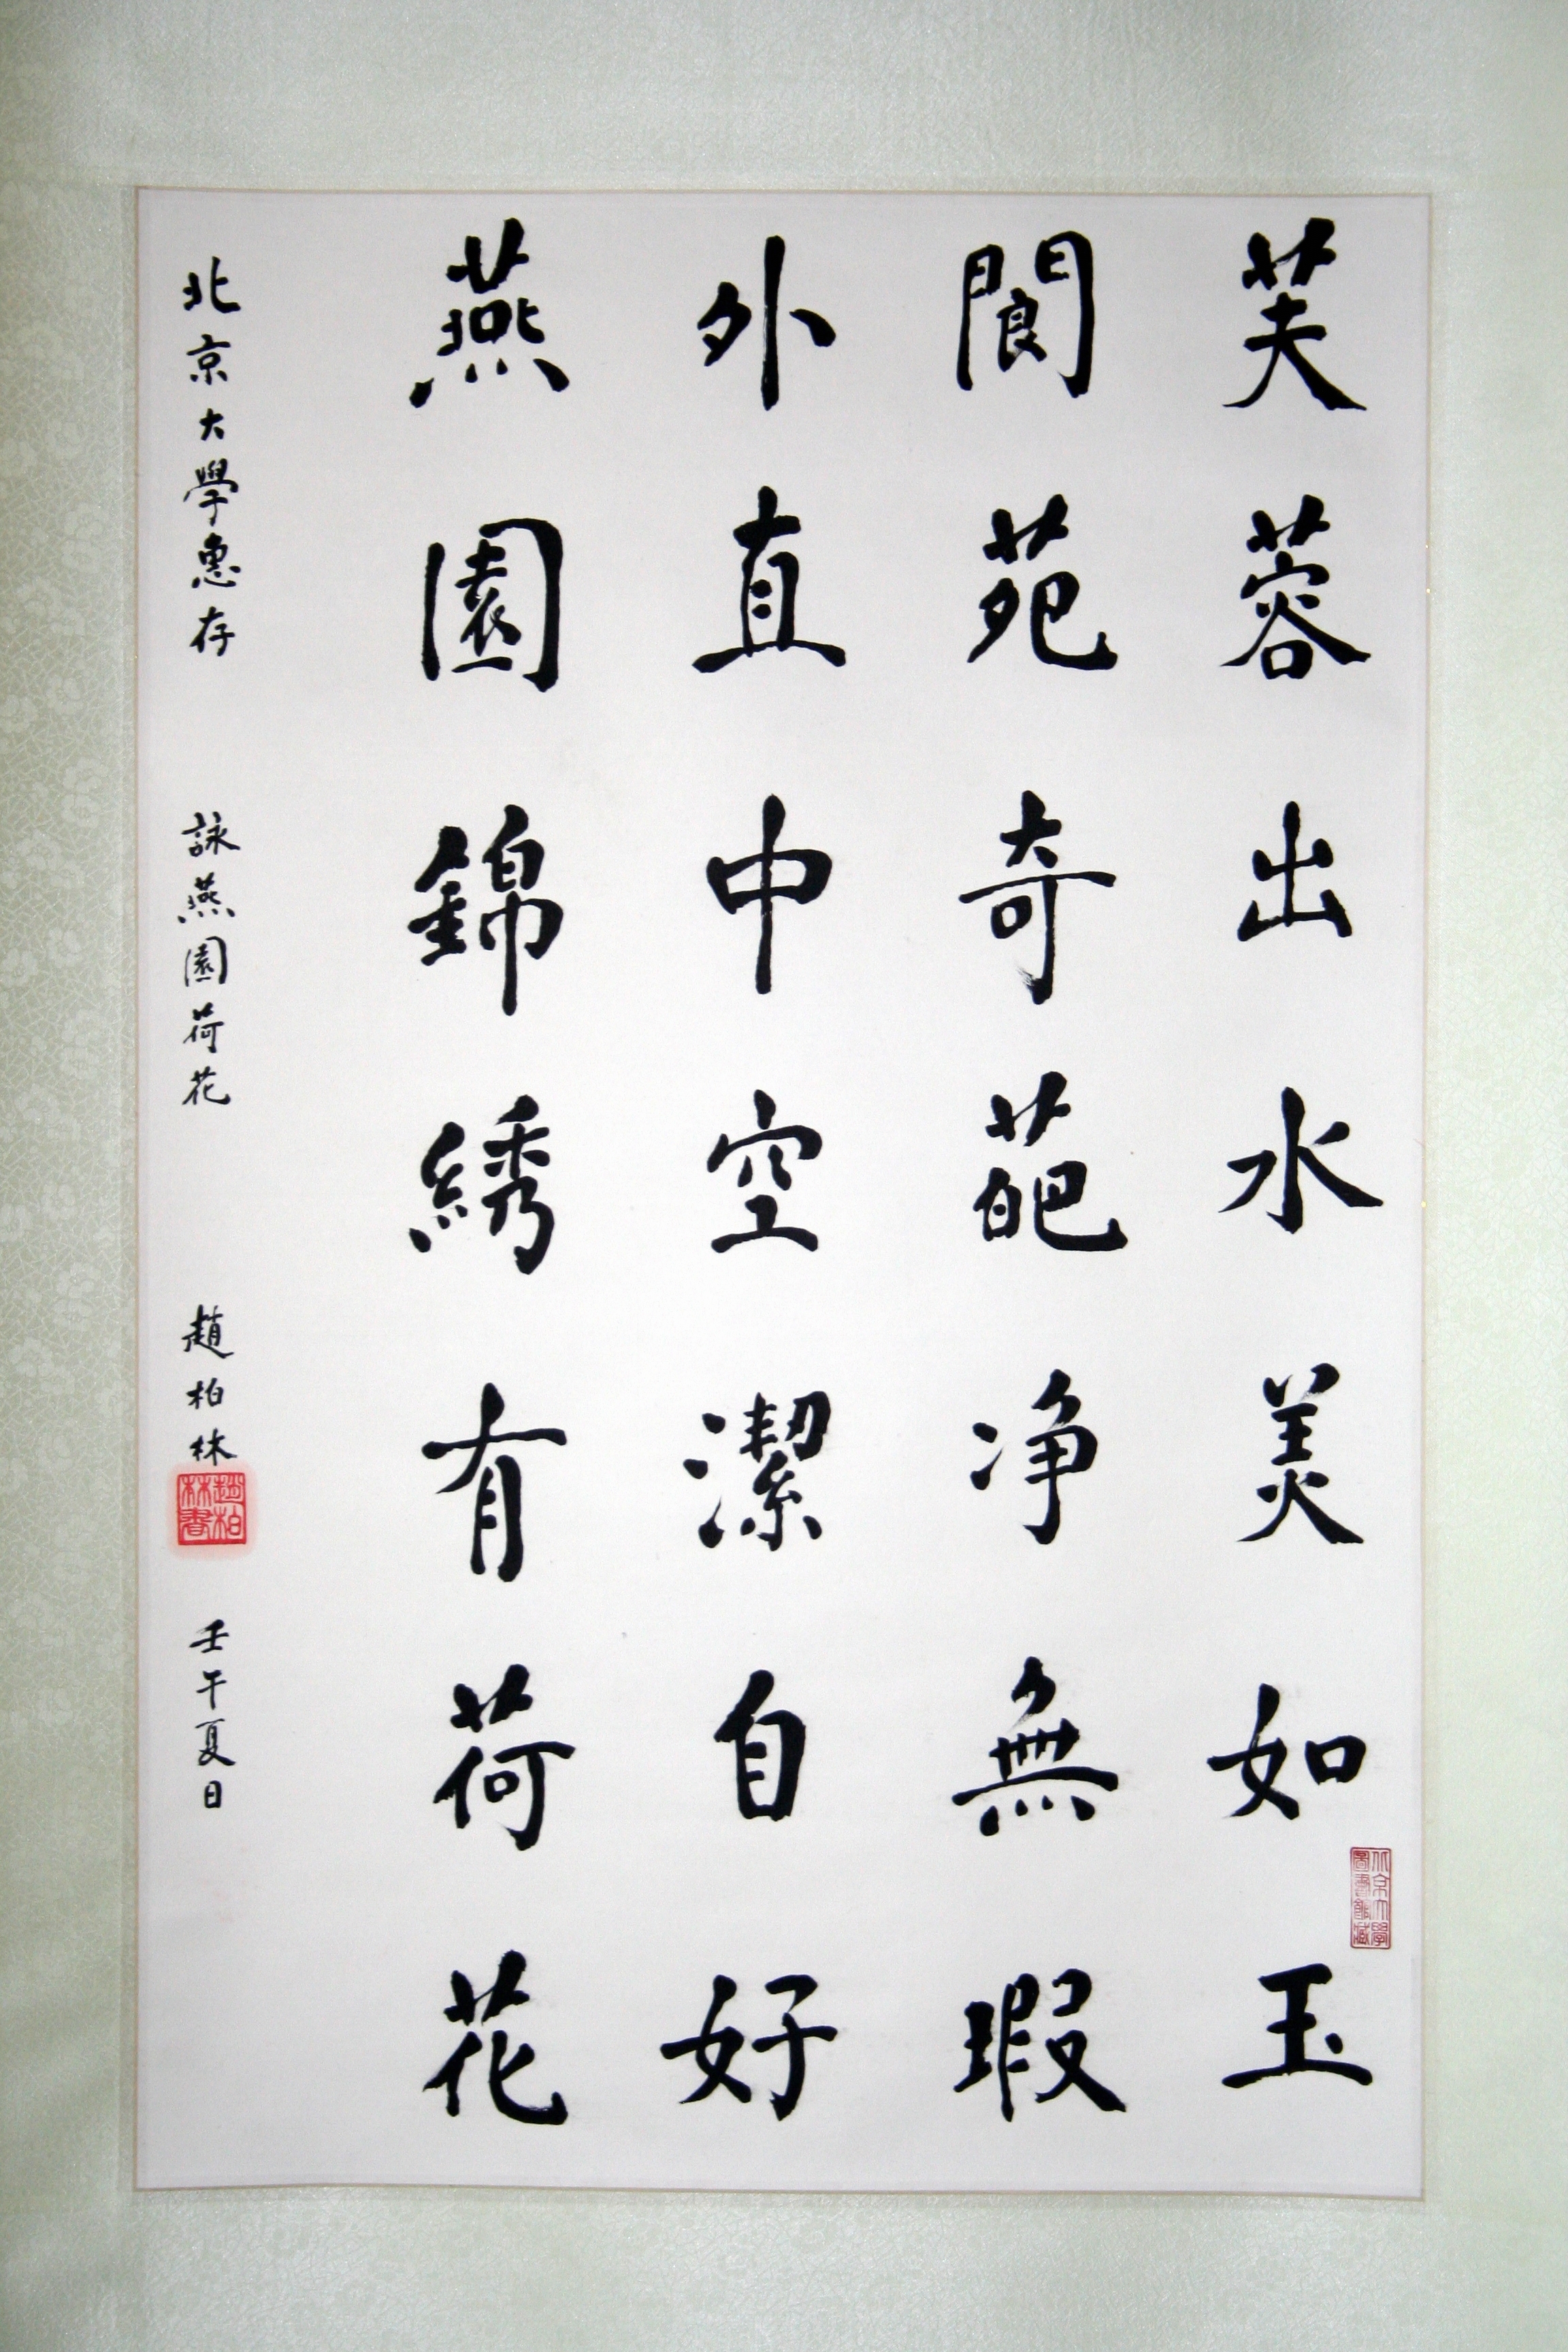 芙蓉出水美如玉
閬苑奇葩净無瑕
外直中空潔自好
燕園錦綉有荷花
北京大學惠存 詠燕園荷花 趙柏林 壬午夏日
趙柏林書
北京大學圖書館藏